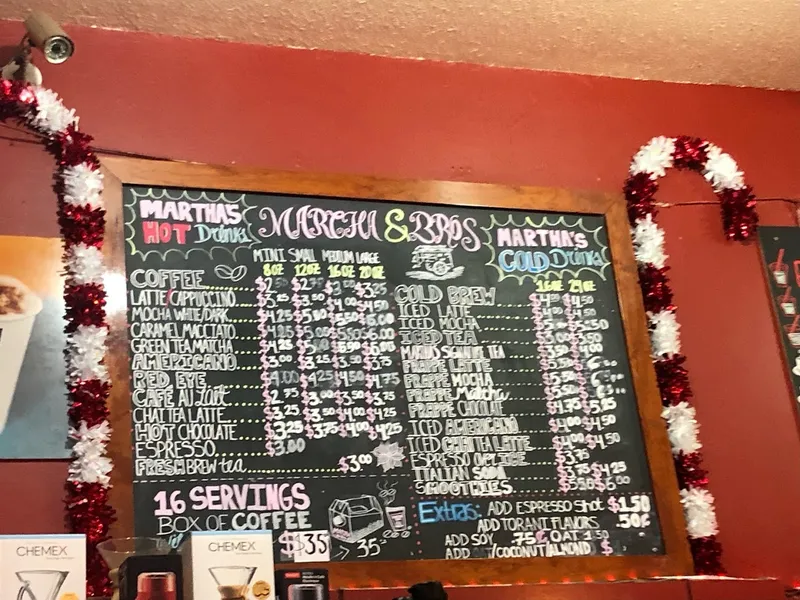 MARTHA & BROS
MARTHA'S
HOT Drinks
MINI SMALL MEDIUM LARGE
8oz 12oz 16oz 20oz
COFFEE $3.25
LATTE/CAPPUCCINO $3.25 $3.50 $4.00 $4.50
MOCHA WHITE/DARK $4.25 $5.00 $5.50 $6.00
CARAMEL MACCIATO $4.25 $5.00 $5.50 $6.00
GREEN TEA MATCHA $4.25 $6.00
AMERICANO $3.00 $3.25 $3.50 $3.75
RED EYE $4.00 $4.25 $4.50 $4.75
CAFÉ AU Lait $2.75 $3.00 $3.50 $3.75
CHAI TEA LATTE $3.25 $3.50 $4.00 $4.25
HOT CHOCOLATE $3.25 $3.75 $4.00 $4.25
ESPRESSO $3.00
FRESH BREW tea $3.00
16 SERVINGS
BOX OF COFFEE
$35
> 35
MARTHA'S
COLD Drinks
16oz 24oz
COLD BREW $4.50
ICED LATTE $4.50
ICED MOCHA $5.50
ICED TEA $3.00 $3.50
MARTHA'S SIGNATURE TEA $3.50 $4.00
FRAPPE LATTE
FRAPPE MOCHA
FRAPPE Matcha
FRAPPE CHOCOLATE $4.75 $5.25
ICED AMERICANO $4.00 $4.50
ICED CHAI TEA LATTE $4.00 $4.50
ESPRESSO OVER ICE $3.75
ITALIAN SODA $3.75 $4.25
SMOOTHIES $5.50 $6.00
Extras: ADD ESPRESSO Shot $1.50
ADD TORANI FLAVORS .50¢
ADD SOY .75¢ OAT 1.50
ADD /COCONUT/ALMOND $
CHEMEX
CHEMEX